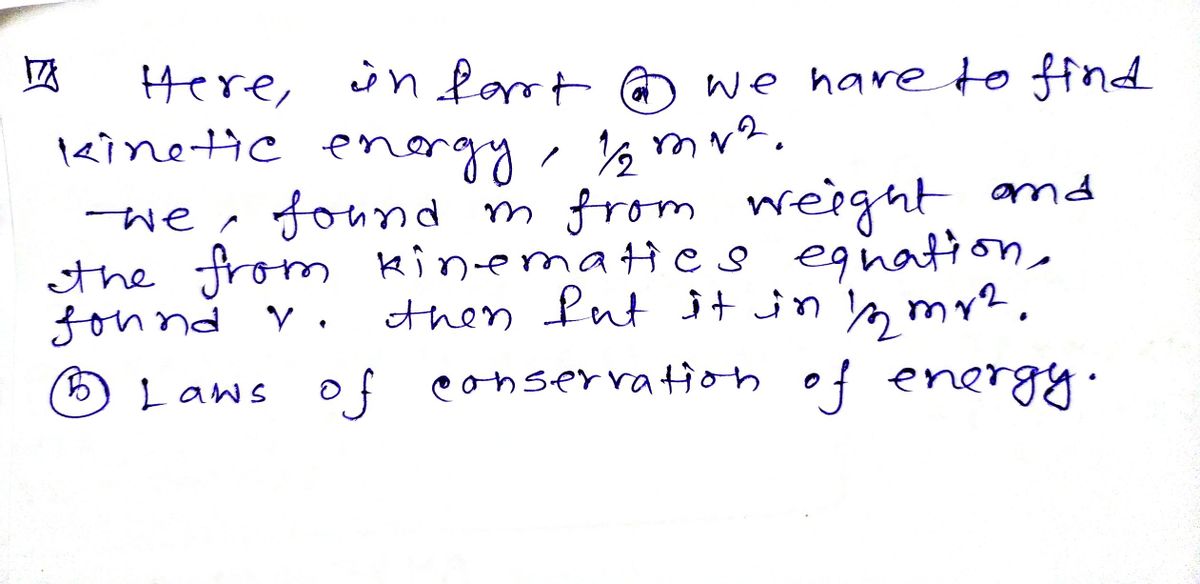 Here, in part ⓐ we have to find
kinetic energy, ½ mv².
we, found m from weight and
the from kinematics equation,
found v. then put it in ½ mv².
ⓑ Laws of conservation of energy.